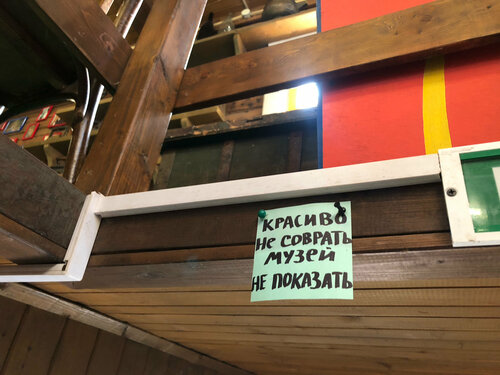 КРАСИВО
НЕ СОВРАТЬ
МУЗЕЙ
НЕ ПОКАЗАТЬ